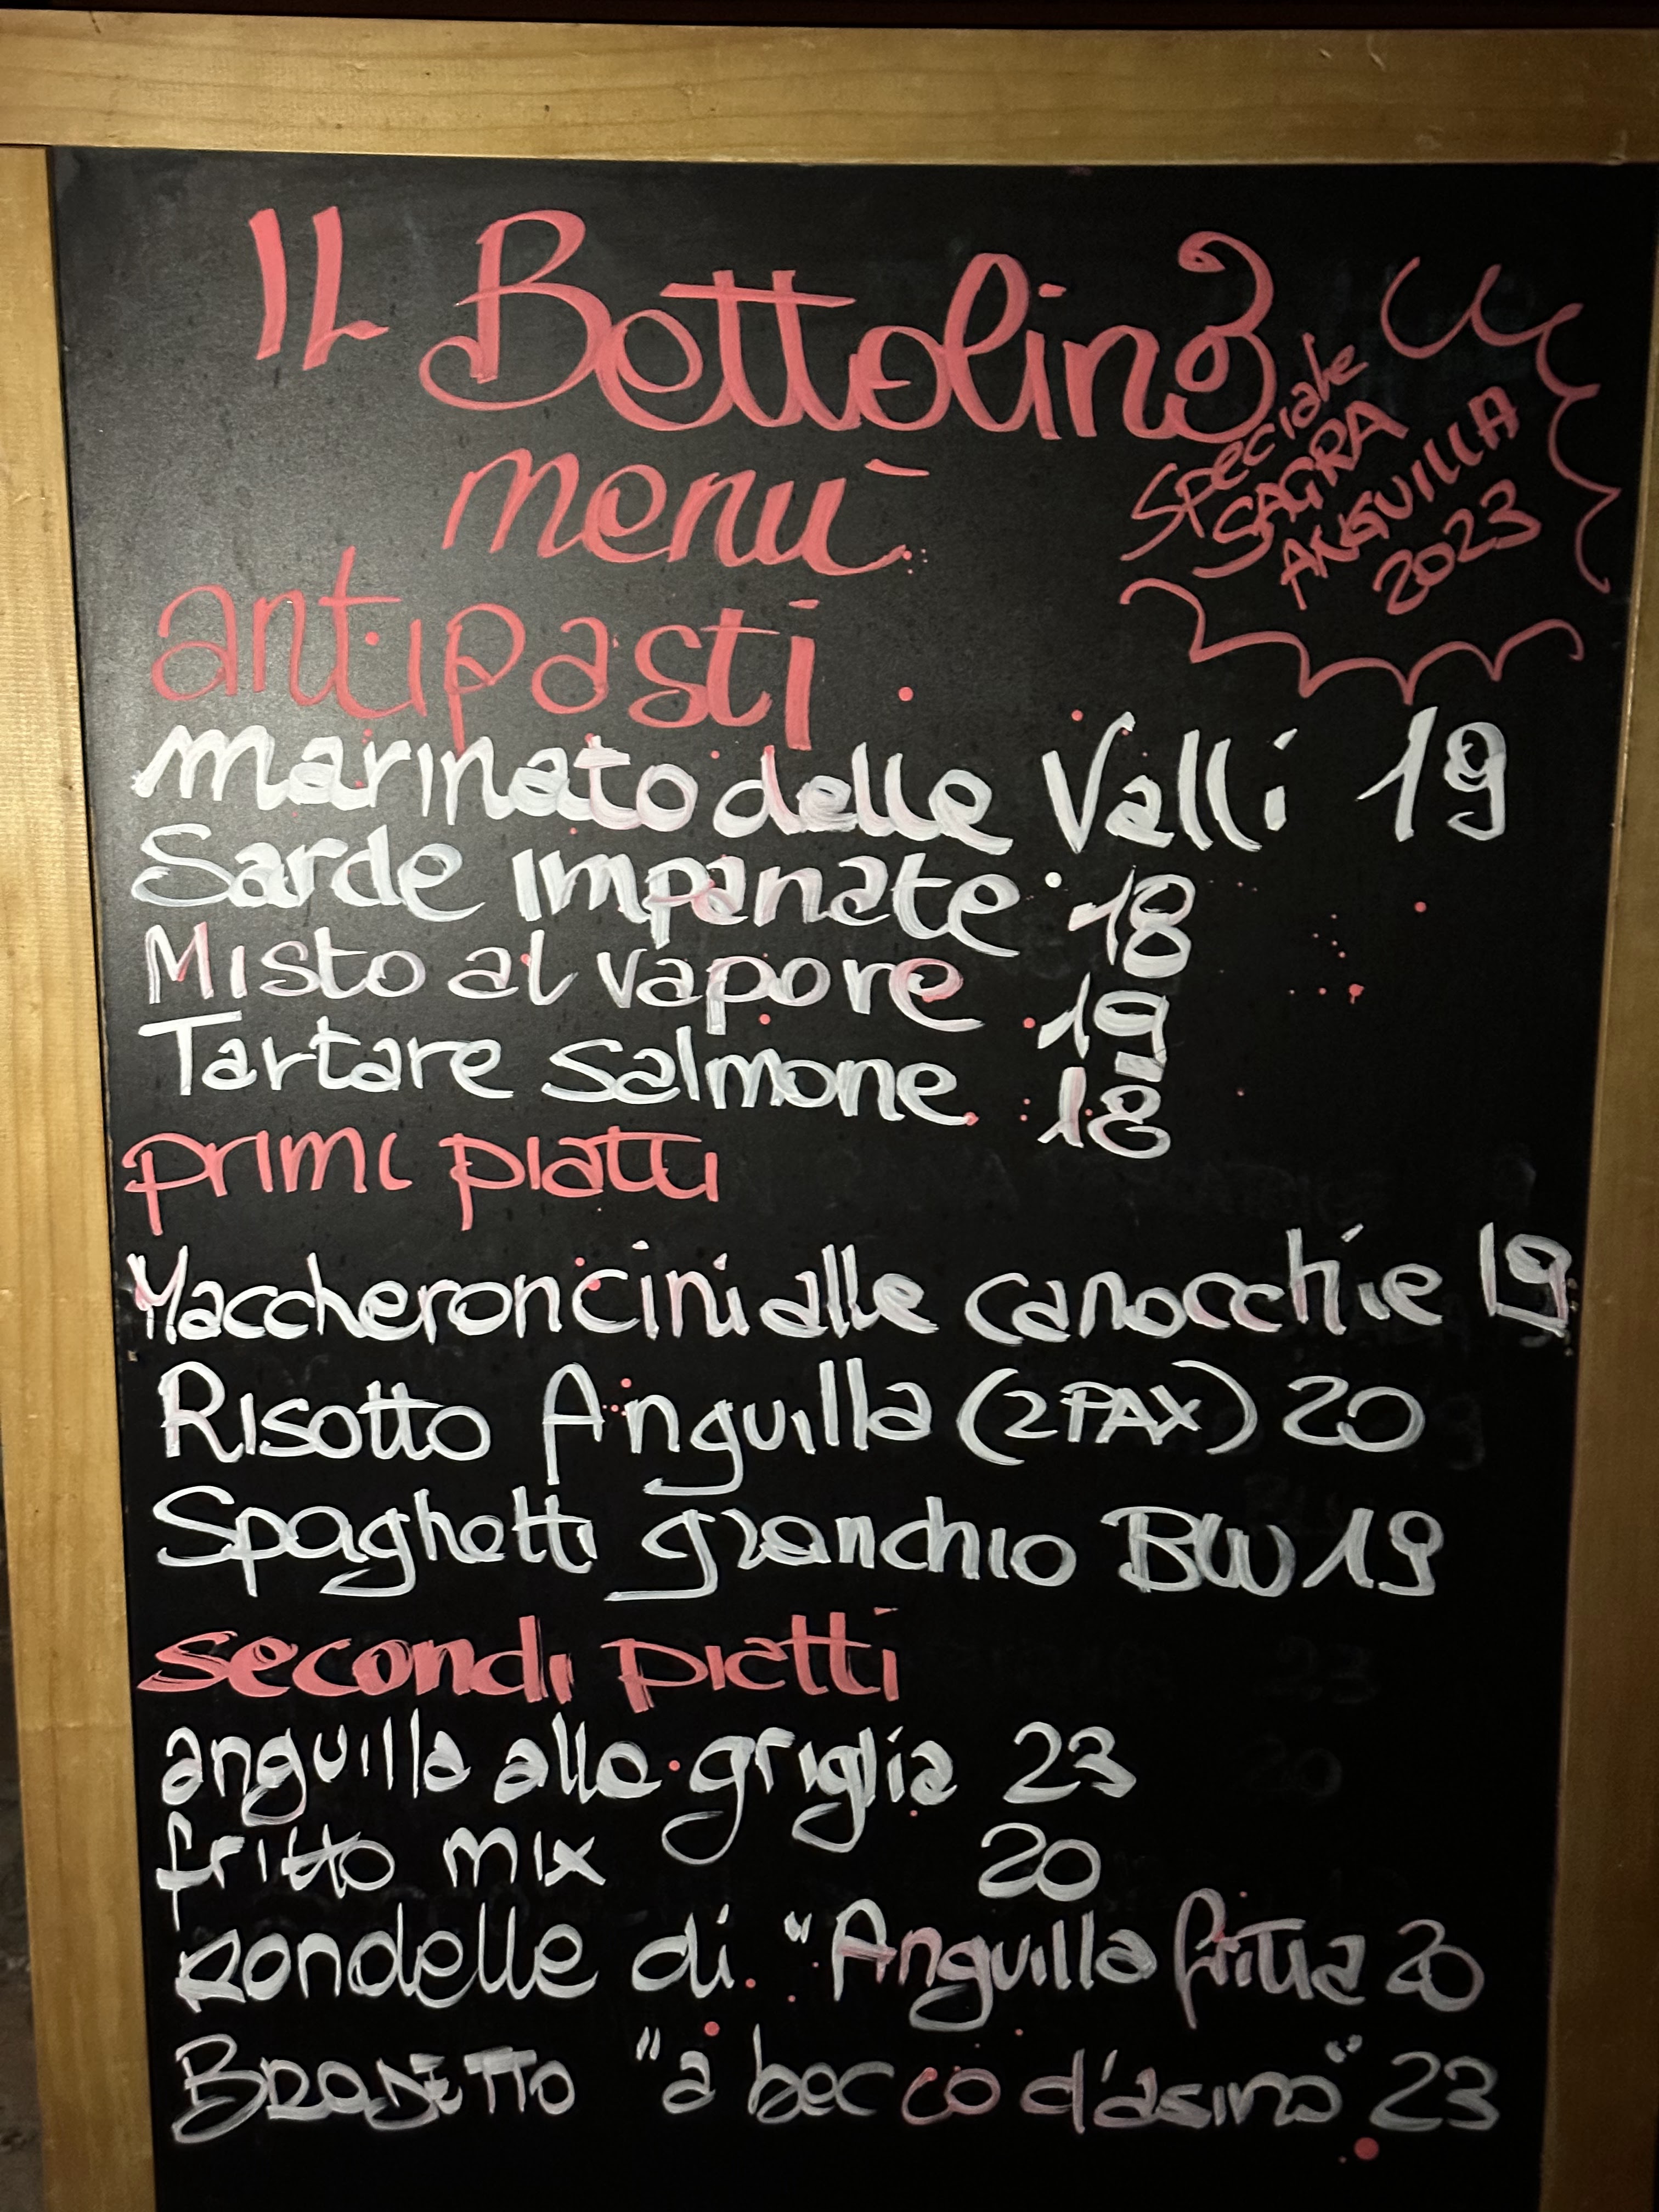 IL Bettolino
menù
Speciale
SAGRA
ANGUILLA
2023
antipasti
marinato delle Valli 19
Sarde impanate 18
Misto al vapore 19
Tartare salmone 18
primi piatti
Maccheroncini alle canocchie 19
Risotto Anguilla (2PAX) 20
Spaghetti granchio BLU 19
secondi piatti
anguilla alla griglia 23
fritto mix 20
Rondelle di "Anguilla fritta 20
BRODETTO "a becco d'asino" 23